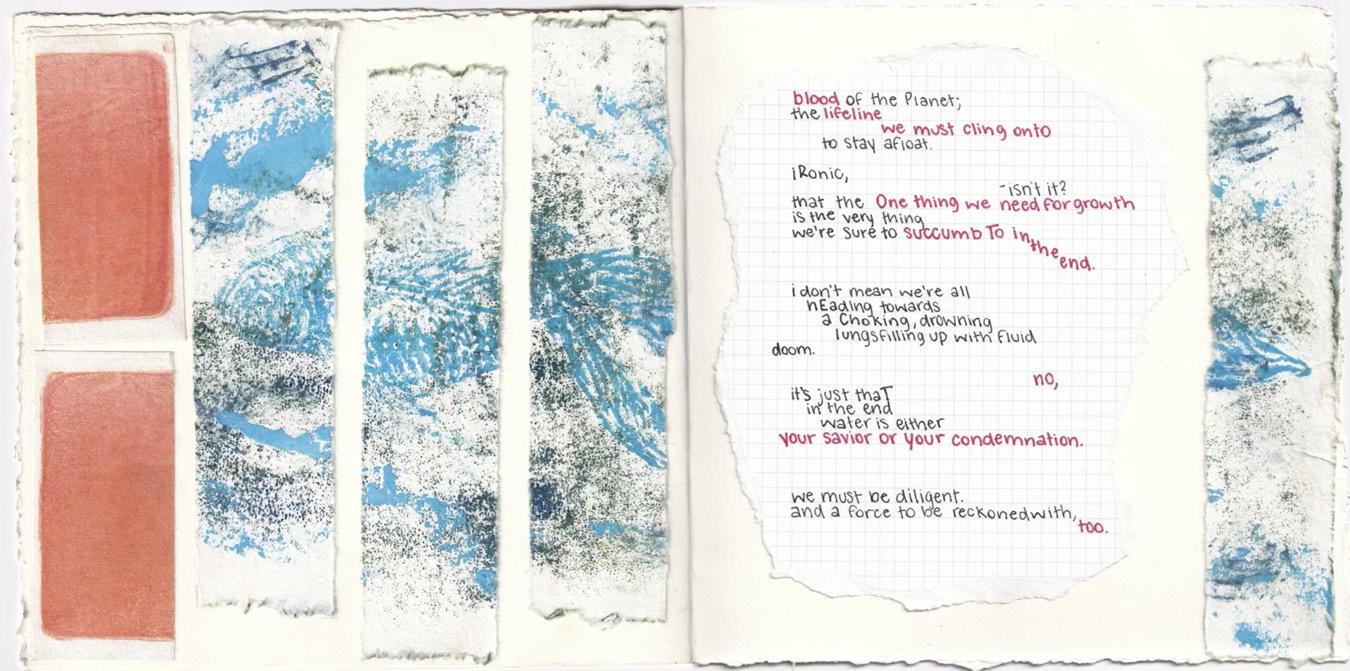 blood of the Planet;
the lifeline
we must cling onto
to stay afloat.
iRonic,
-isn't it?
that the One thing we need for growth
is the very thing
we're sure to succumb To in the end.
i don't mean we're all
hEading towards
a Choking, drowning
lungs filling up with fluid
doom.
no,
it's just thaT
in the end
water is either
your savior or your condemnation.
we must be diligent.
and a force to be reckoned with,
too.